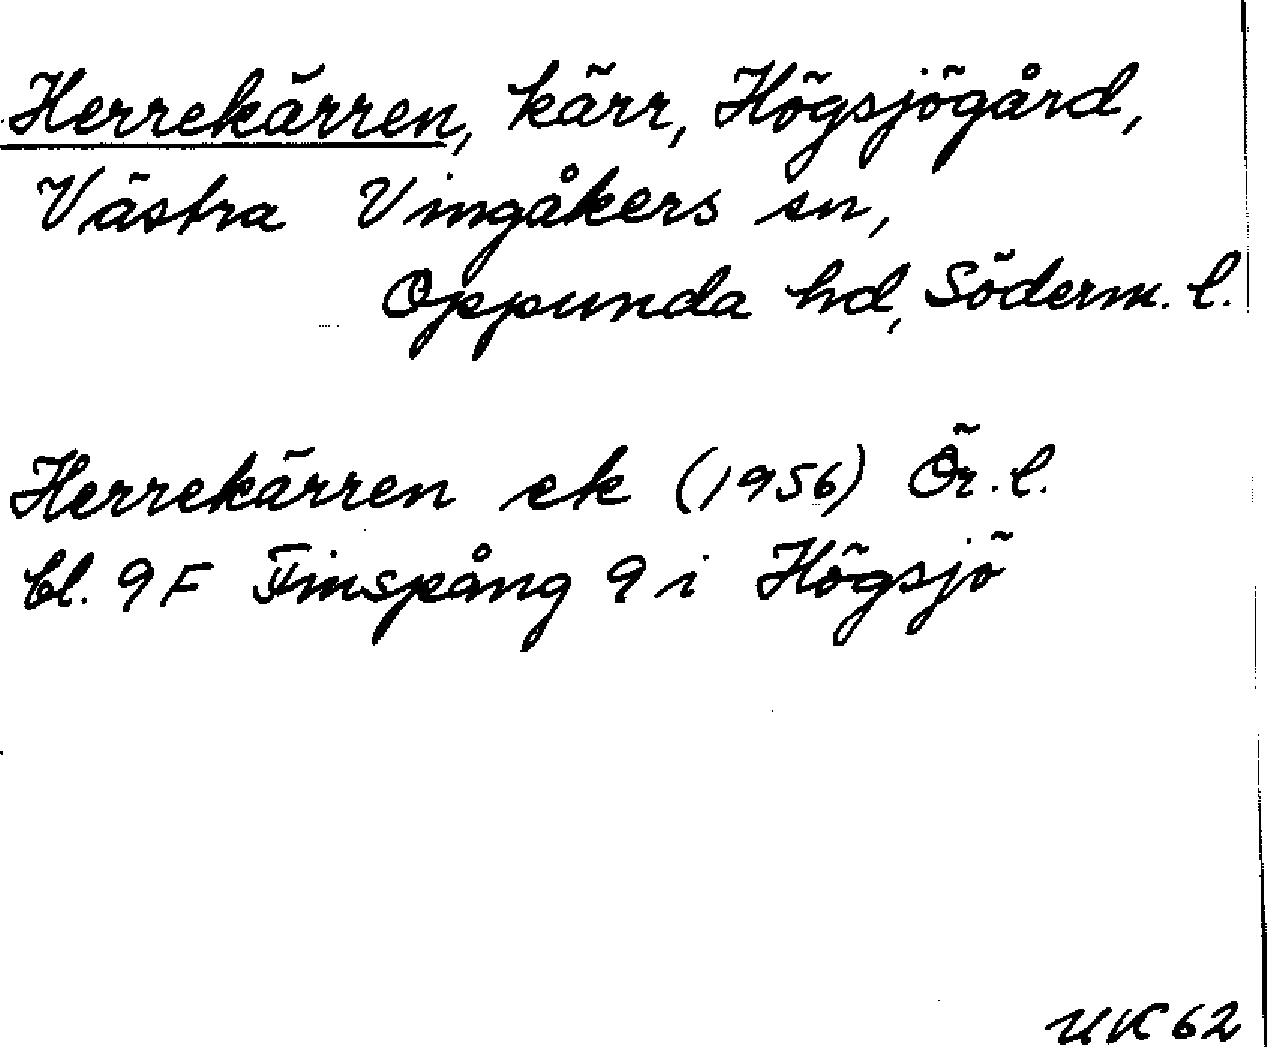 Herrekärren, kärr, Högsjögård,
Västra Vingåkers sn,
Oppunda hd, Söderm. l.
Herrekärren ek (1956) Ör. l.
bl. 9F Finspång 9 i Högsjö
UK 62